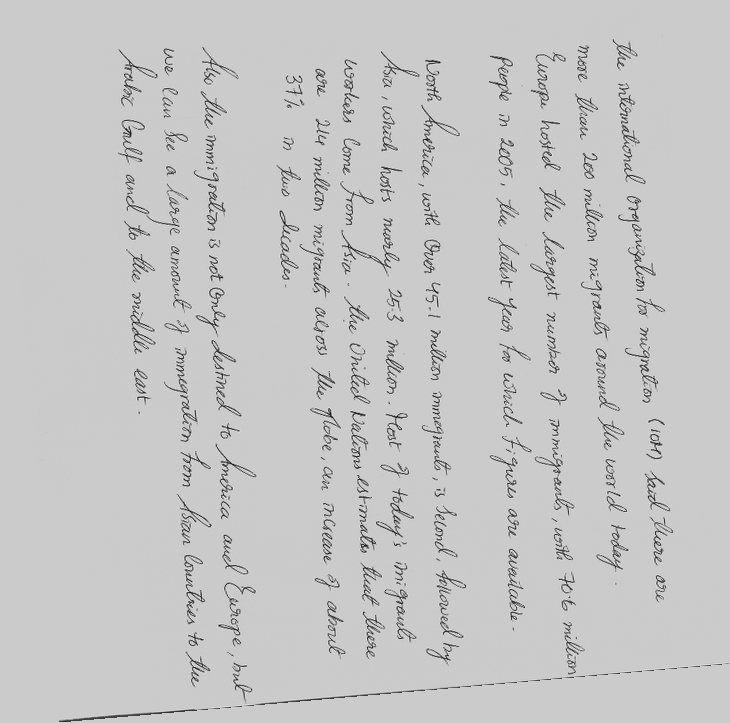 the international organization for migration (IOM) said there are
more than 200 million migrants around the world today.
Europe hosted the largest number of immigrants, with 70.6 million
People in 2005, the latest year for which figures are available.
North America, with over 45.1 million immegrants, is Second, followed by
Asia, which hosts nearly 25.3 million. Most of today's migrants
workers Come from Asia. the United Nations estimates that there
are 214 million migrants across the globe, an increase of about
37% in two decades.
Also the immigration is not Only destined to America and Europe, but
we can See a large amount of immegration from Asian Countries to the
Arabic Gulf and to the middle east.